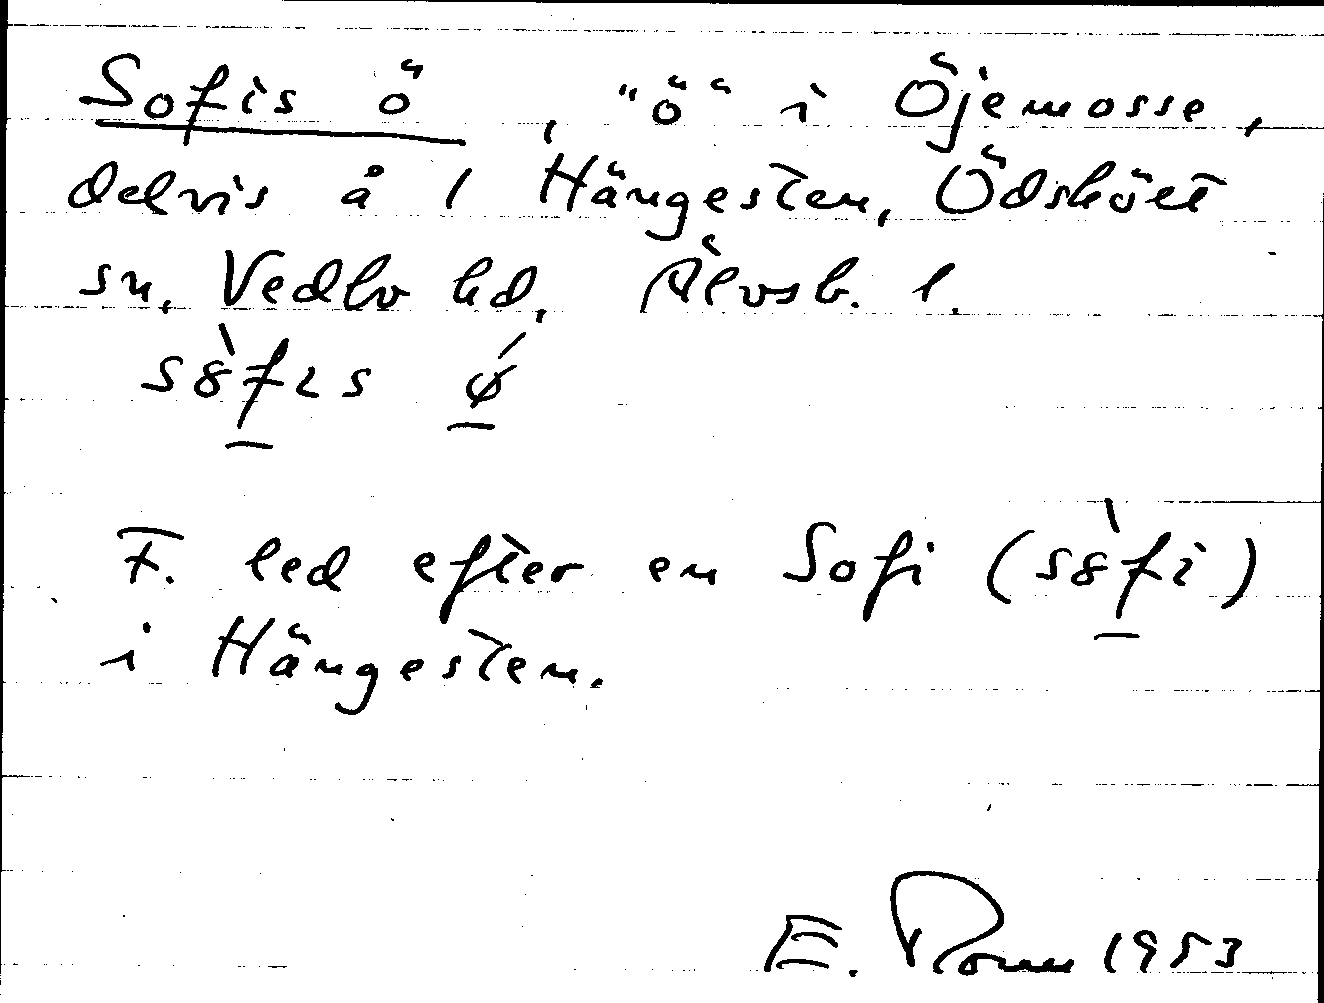 Sofis ö, "ö" i Öjemosse,
delvis å 1 Hängesten, Ödskölt
sn, Vedbo hd, Älvsb. l.
s8̀fıs ǿ
F. led efter en Sofi (s8̀fi)
i Hängesten.
E. 1953